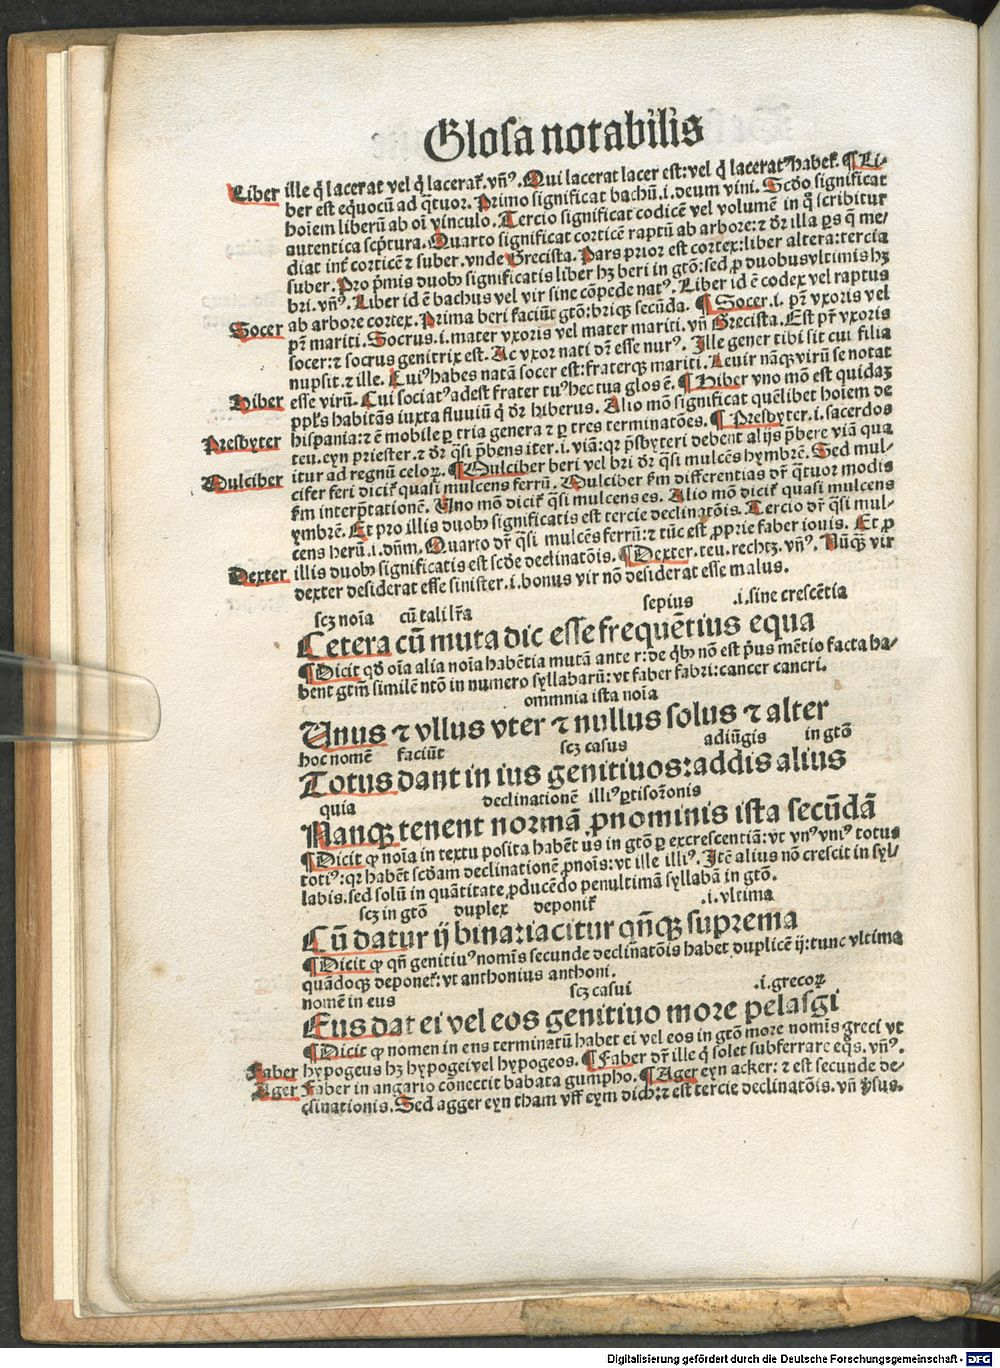 Glosa notabilis
Liber ille q̄ lacerat vel q̄ lacerat᷑. vñ⁹. Qui lacerat lacer est: vel q̄ lacerat⁹ habet᷑. ¶ Li-
ber est equocū ad q̄tuor. Primo significat bachū .i. deum vini. Scd̄o significat
hoīem liberū ab oī vinculo. Tercio significat codicē vel volumē in q̄ scribitur
autentica scp̄tura. Quarto significat corticē raptū ab arbore: ⁊ dr̄ illa ꝑs q̄ me-
diat int̄ corticē ⁊ suber. vnde Grecista. Pars prior est cortex: liber altera: tercia
suber. Pro p̄mis duobꝫ significatis liber hꝫ beri in gtō: sed ꝓ duobus vltimis hꝫ
bri. vñ⁹. Liber id ē bachus vel vir sine cōpede nat⁹. Liber id ē codex vel raptus
ab arbore cortex. Prima beri faciūt gtō: briqꝫ secūda. ¶ Socer .i. pr̄ vxoris vel
Socer pr̄ mariti. Socrus .i. mater vxoris vel mater mariti. vñ Grecista. Est pr̄ vxoris
socer: ⁊ socrus genitrix est. Ac vxor nati dr̄ esse nur⁹. Ille gener tibi sit cui filia
nupsit. ⁊ ille. Cui⁹ habes natā socer est: fraterqꝫ mariti. Leuir nāqꝫ virū se notat
Hiber esse virū. Cui sociat⁹ adest frater tu⁹ hec tua glos ē. ¶ Hiber vno mō est quidaꝫ
ppl̄s habitās iuxta fluuiū q̄ dr̄ hiberus. Alio mō significat quēlibet hoīem de
Presbyter hispania: ⁊ ē mobile ꝑ tria genera ⁊ ꝑ tres terminatōes. ¶ Presbyter .i. sacerdos
teu. eyn priester. ⁊ dr̄ q̄si p̄bens iter .i. viā: qꝛ p̄sbyteri debent alijs p̄bere viā qua
Mulciber itur ad regnū celoꝝ. ¶ Mulciber beri vel bri dr̄ q̄si mulcēs hymbrē. Sed mul-
cifer feri dicit᷑ quasi mulcens ferrū. Mulciber ẜm differentias dr̄ q̄tuor modis
ẜm interp̄tationē. Uno mō dicit᷑ q̄si mulcens es. Alio mō dicit᷑ quasi mulcens
ymbrē. Et pro illis duobꝫ significatis est tercie declinatōis. Tercio dr̄ q̄si mul-
cens herū .i. dn̄m. Quarto dr̄ q̄si mulcēs ferrū: ⁊ tūc est ꝓprie faber iouis. Et ꝓ
Dexter illis duobꝫ significatis est scd̄e declinatōis. ¶ Dexter. teu. rechtꝫ. vñ⁹. Nūqꝫ vir
dexter desiderat esse sinister .i. bonus vir nō desiderat esse malus.
scꝫ noīa cū tali lr̄a sepius .i. sine crescētia
Cetera cū muta dic esse frequētius equa
¶ Dicit qd̄ oīa alia noīa habētia mutā ante r: de qibꝫ nō est p̄us mētio facta ha-
bent gtm̄ similē ntō in numero syllabarū: vt faber fabri: cancer cancri.
ommnia ista noīa
Unus ⁊ vllus vter ⁊ nullus solus ⁊ alter
hoc nomē faciūt scꝫ casus adiūgis in gtō
Totus dant in ius genitiuos: addis alius
quia declinationē illi⁹ ꝑtis or̄onis
Nanqꝫ tenent normā ꝓnominis ista secūdā
¶ Dicit ꝙ noīa in textu posita habēt us in gtō ꝑ excrescentiā: vt vn⁹ vni⁹ totus
toti⁹: qꝛ habēt scd̄am declinationē ꝓnoīs: vt ille illi⁹. Itē alius nō crescit in syl-
labis. sed solū in quātitate ꝓducēdo penultimā syllabā in gtō.
scꝫ in gtō duplex deponit᷑ .i. vltima
Cū datur ij binaria citur qn̄qꝫ suprema
¶ Dicit ꝙ qn̄ genitiu⁹ nomīs secunde declinatōis habet duplicē ij: tunc vltima
quādoqꝫ deponet᷑: vt anthonius anthoni.
nomē in eus scꝫ casui .i. grecoꝝ
Eus dat ei vel eos genitiuo more pelasgi
¶ Dicit ꝙ nomen in ens terminatū habet ei vel eos in gtō more nomīs greci vt
Faber hypogeus hꝫ hypogei vel hypogeos. ¶ Faber dr̄ ille q̄ solet subferrare eq̄s. vñ⁹.
Ager Faber in angario cōnectit babata gumpho. ¶ Ager eyn acker: ⁊ est secunde de-
clinationis. Sed agger eyn tham vff eym dich: ⁊ est tercie declinatōis. vñ v̄sus.
Digitalisierung gefördert durch die Deutsche Forschungsgemeinschaft - DFG